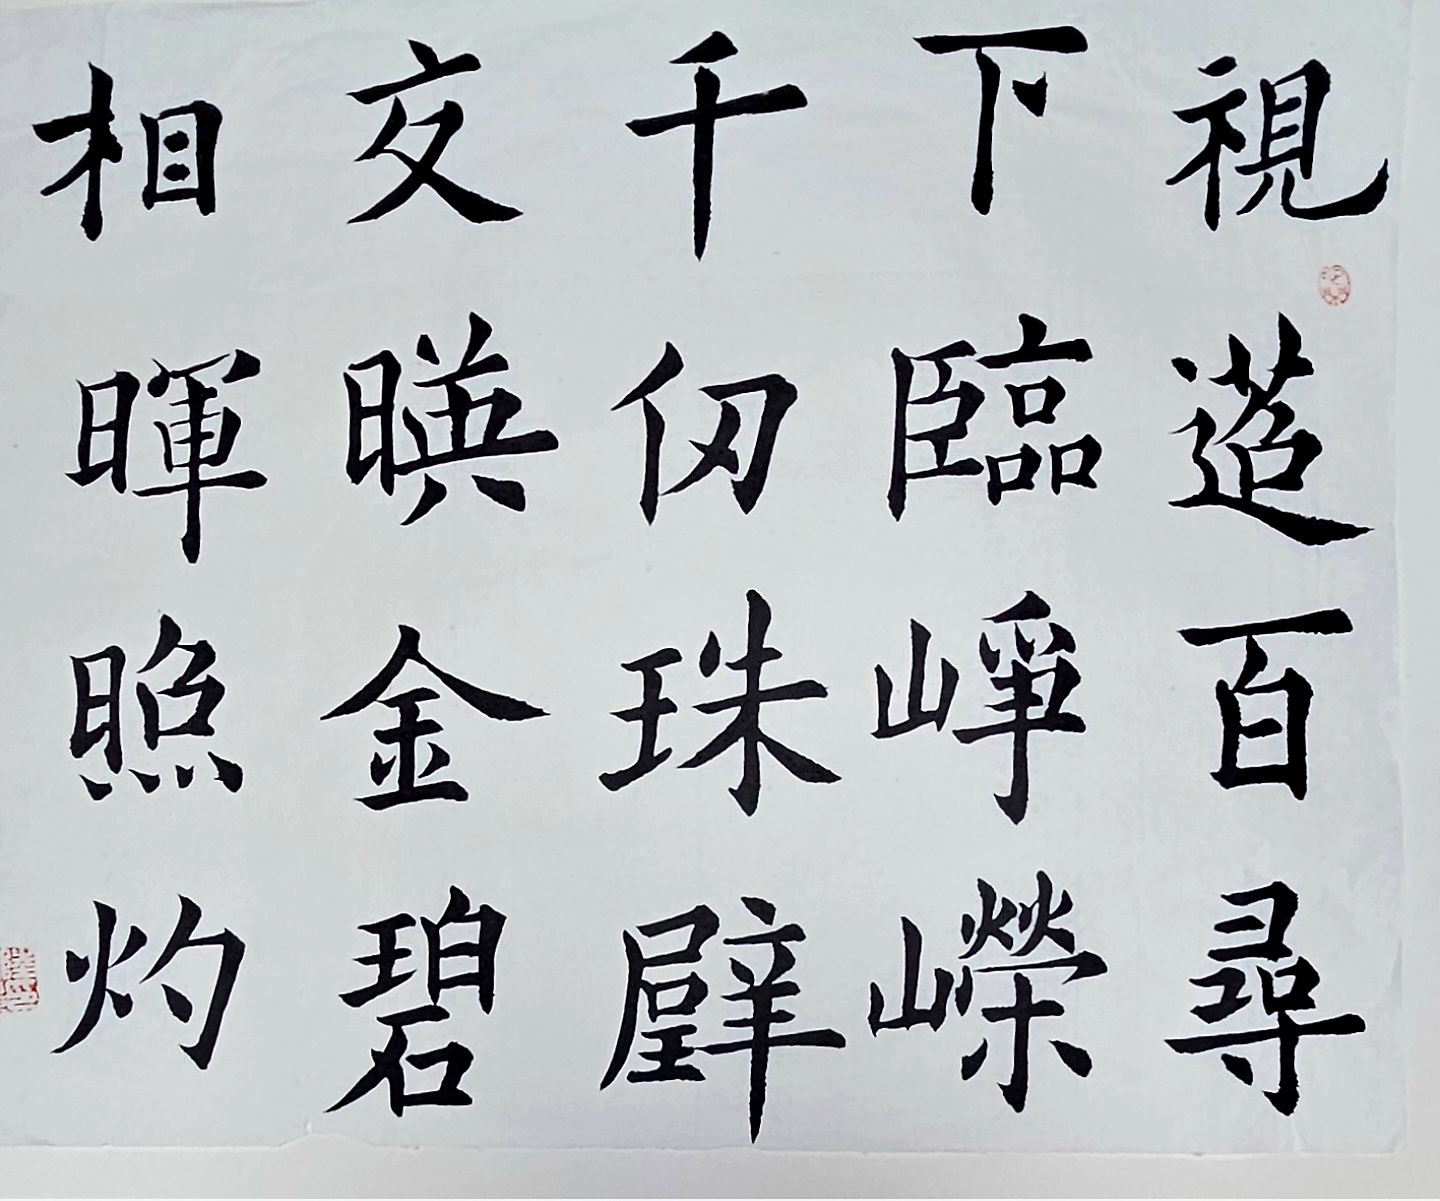 視迢百尋
下臨崢嶸
千仞珠璧
交暎金碧
相暉照灼